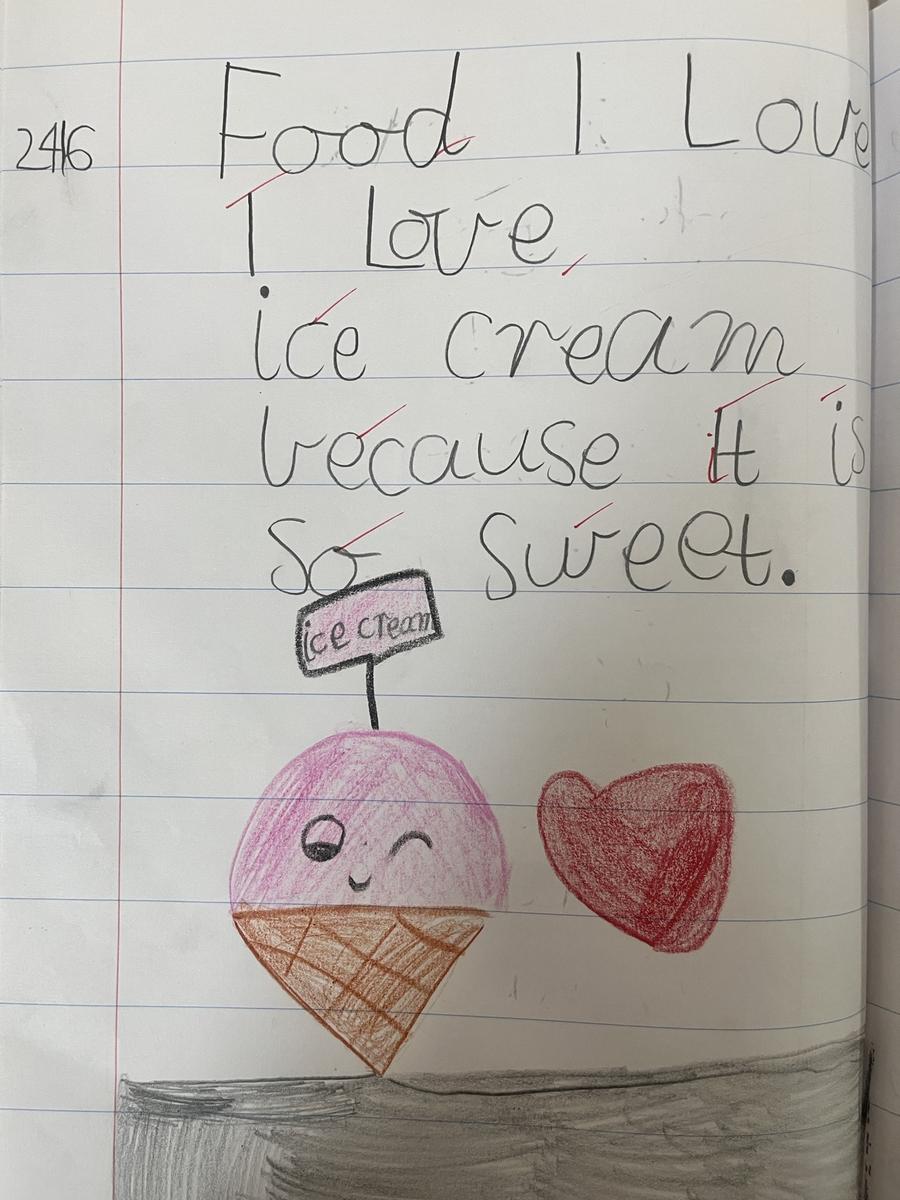 24/6
Food I Love
I Love
ice cream
because It is
so sweet.
ice cream